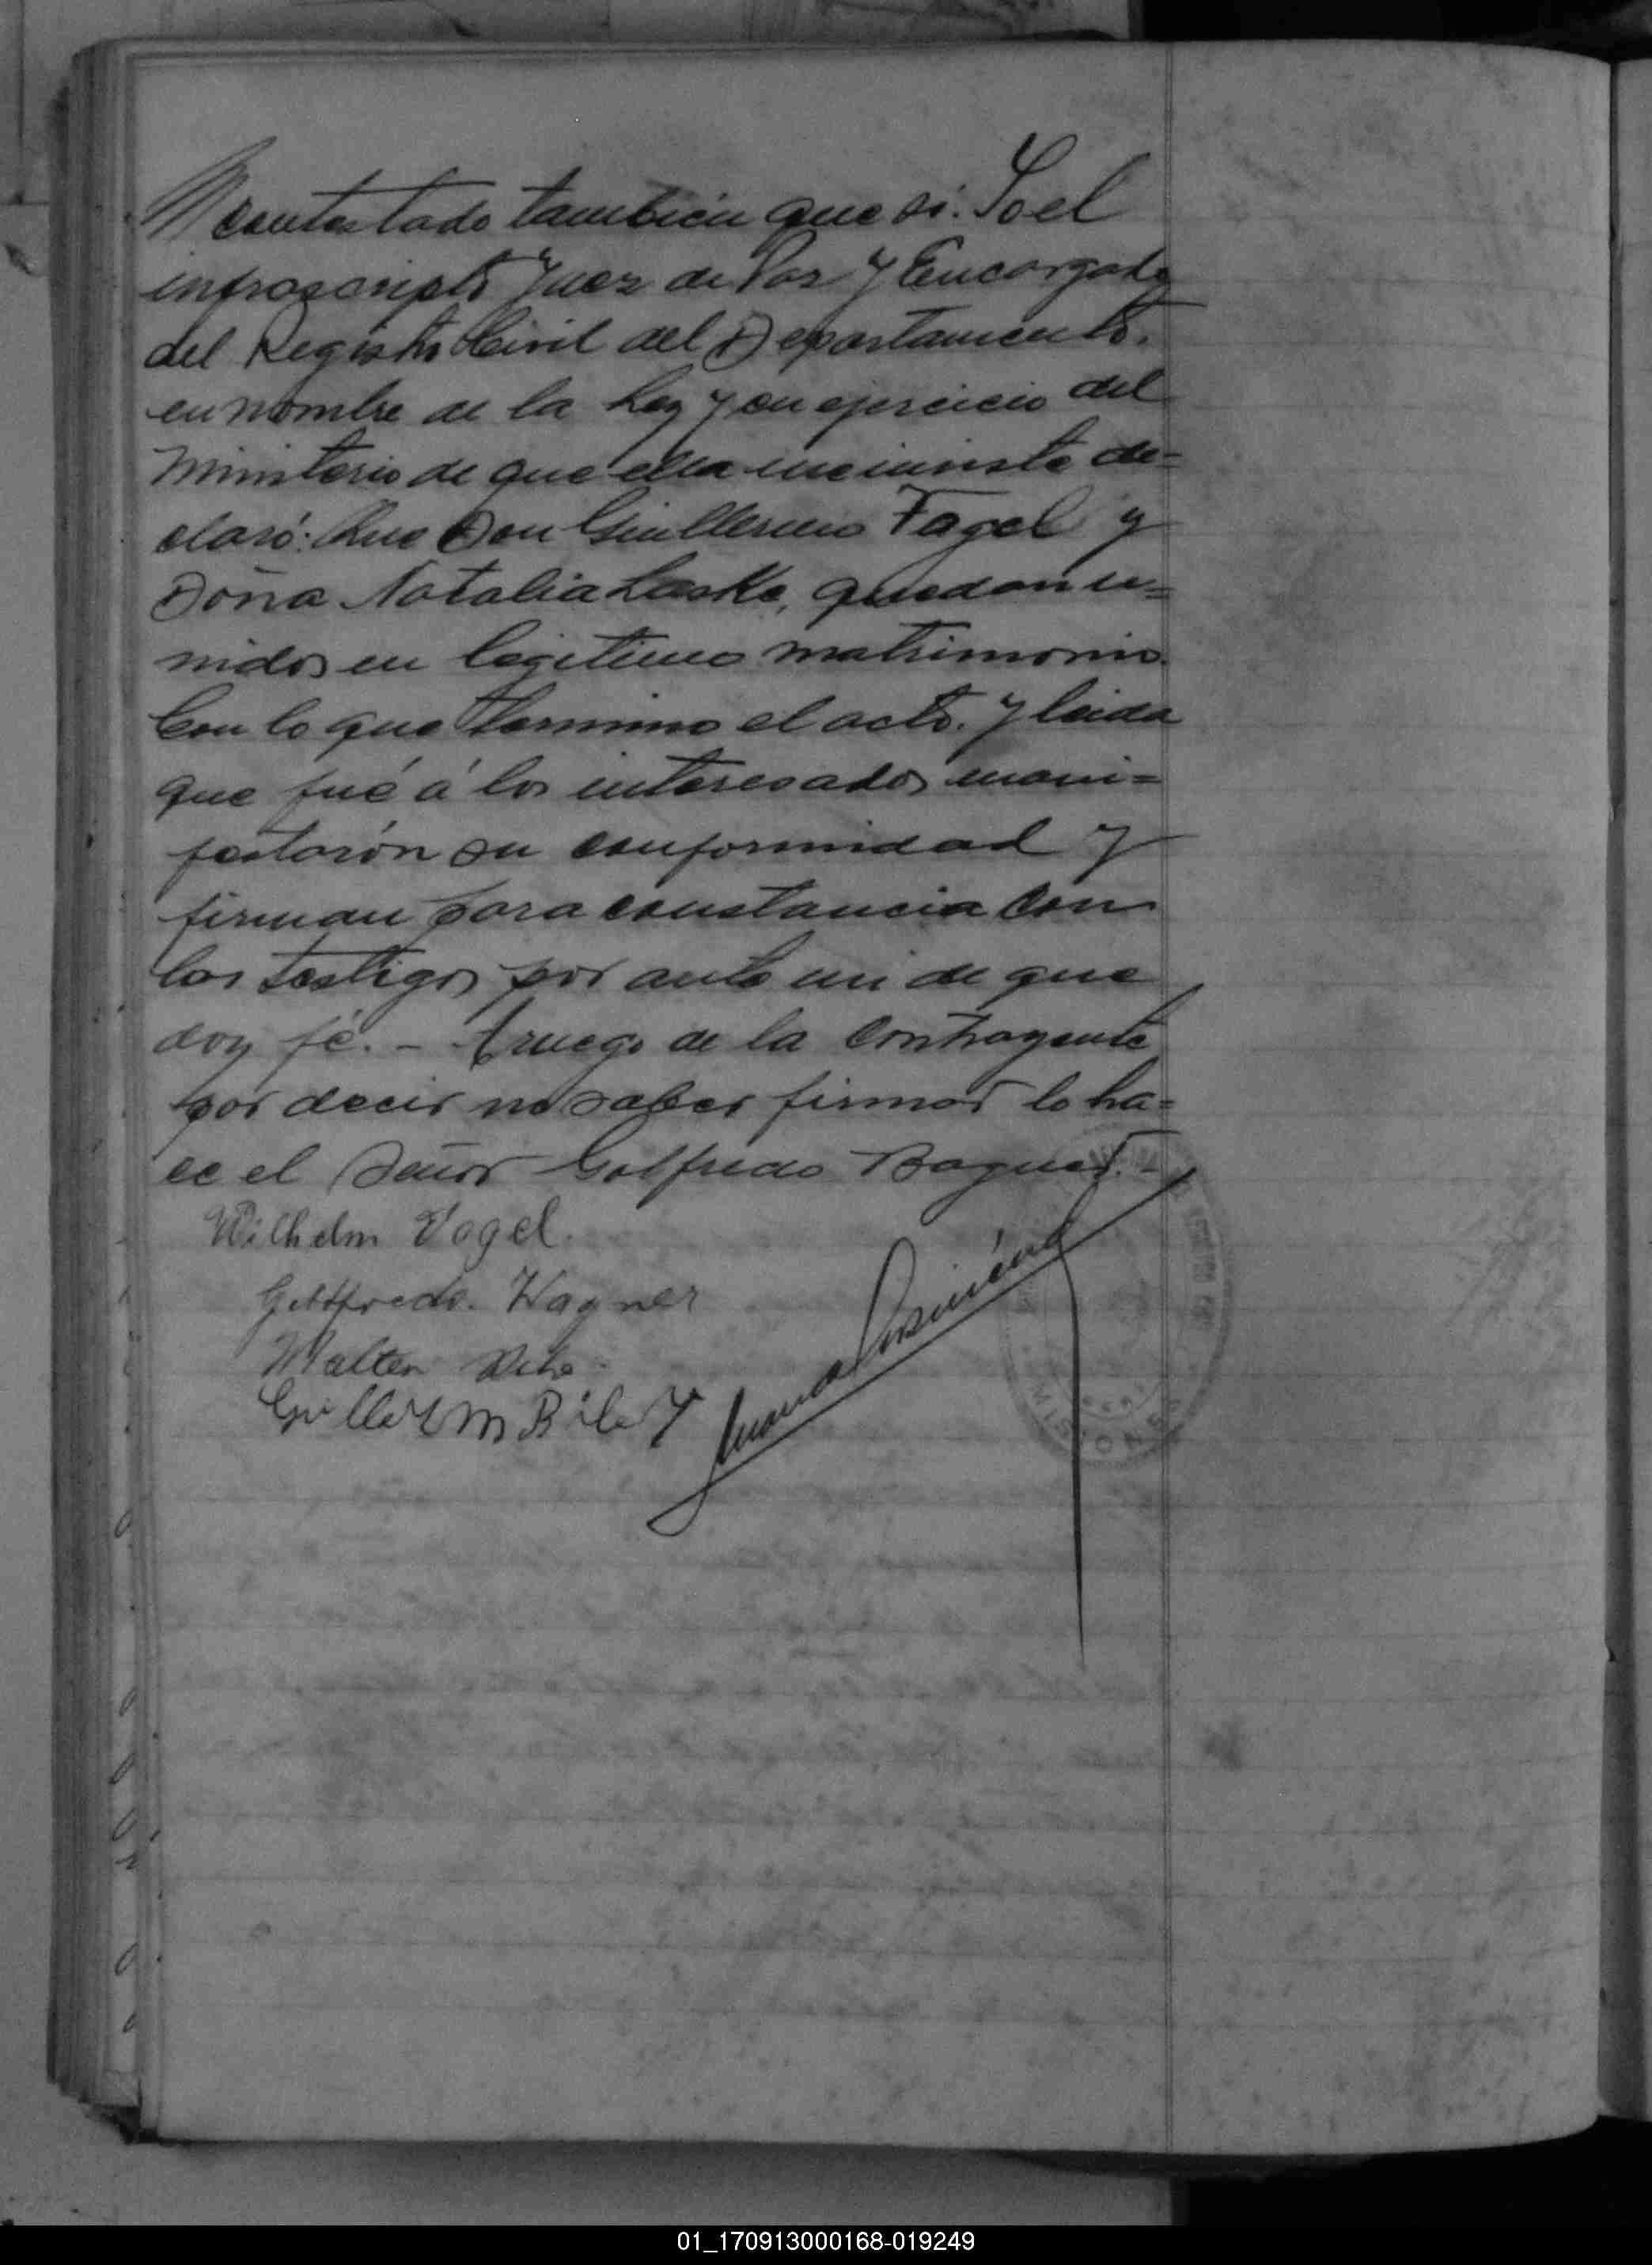 contestado tambien que si. Yo el
infrascripto Juez de Paz y Encargado
del Registro Civil del Departamento.
en nombre de la Ley y en ejercicio del
Ministerio de que ella me inviste de=
claró: Que Don Guillermo Fagel y
Doña Natalia Laske, quedan u=
nidos en legitimo matrimonio.
Con lo que termino el acto. y leida
que fué á los interesados mani=
festarón su conformidad y
firman para constancia con
los testigos por ante mi de que
doy fé. - A ruego de la contrayente
por decir no saber firmar lo ha=
ce el Señor Golfredo Bagner. -
Wilhelm Vogel.
Gottfredo. Wagner
Walter
Guillerm
MISIONES
01_170913000168-019249